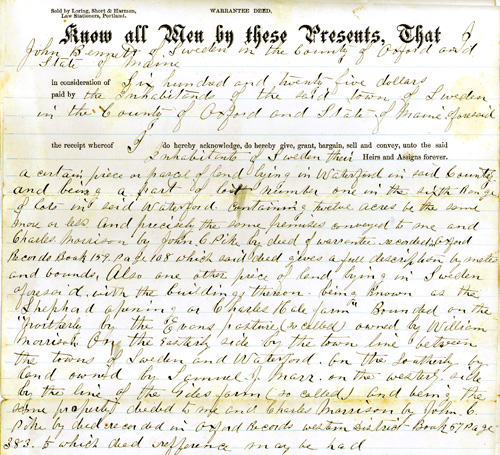 Sold by Loring, Short & Harmon,
Law Stationers, Portland.
WARRANTEE DEED.
Know all Men by these Presents, That I
John Bennett of Sweden in the County of Oxford and
State of Maine
in consideration of Six hundred and twenty five dollars
paid by the Inhabitants of the said town of Sweden
in the County of Oxford and State of Maine aforesaid
the receipt whereof I do hereby acknowledge, do hereby give, grant, bargain, sell and convey, unto the said
Inhabitants of Sweden their Heirs and Assigns forever.
a certain piece or parcel of land lying in Waterford in said County
and being a part of lot number one in the sixth Range
of lots in said Waterford. containing twelve acres be the same
more or less And precisely the same premises conveyed to me and
Charles Morrison by John C Pike by deed of warrantee recorded Oxford
Records Book 159. Page 108 which said deed gives a full description by metes
and bounds, Also one other piece of land lying in Sweden
aforesaid, with the buildings thereon being known as the
"Shephard opening or Charles Hale farm" Bounded on the
Northerly by the Evans pasture (so called) owned by William
Morrison On the Easterly side by the town line between
the towns of Sweden and Waterford. On the Southerly by
land owned by Samuel J. Marr. on the westerly side
by the line of the farm (so called) and being the
same property deeded to me and Charles Morrison by John. C.
Pike by deed recorded in Oxford Records western District Book 57 Page
383. to which deed refference may be had